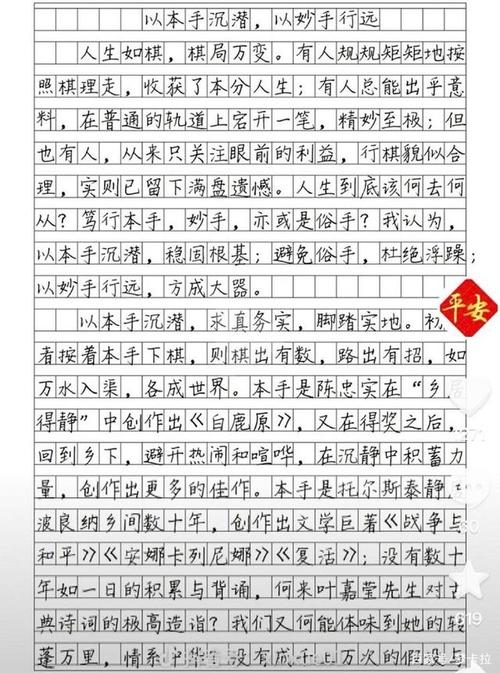 以本手沉潜，以妙手行远
人生如棋，棋局万变。有人规规矩矩地按
照棋理走，收获了本分人生；有人总能出乎意
料，在普通的轨道上宕开一笔，精妙至极；但
也有人，从来只关注眼前的利益，行棋貌似合
理，实则已留下满盘遗憾。人生到底该何去何
从？笃行本手，妙手，亦或是俗手？我认为，
以本手沉潜，稳固根基；避免俗手，杜绝浮躁；
以妙手行远，方成大器。
平安
以本手沉潜，求真务实，脚踏实地。初
者按着本手下棋，则棋出有数，路出有招，如
万水入渠，各成世界。本手是陈忠实在“乡居
得静”中创作出《白鹿原》，又在得奖之后，
回到乡下，避开热闹和喧哗，在沉静中积蓄力
量，创作出更多的佳作。本手是托尔斯泰静
波良纳乡间数十年，创作出文学巨著《战争与
和平》《安娜卡列尼娜》《复活》；没有数十
年如一日的积累与背诵，何来叶嘉莹先生对古
619
典诗词的极高造诣？我们又何能体味到她的转
蓬万里，情系中华
没有成千上万次的假设与